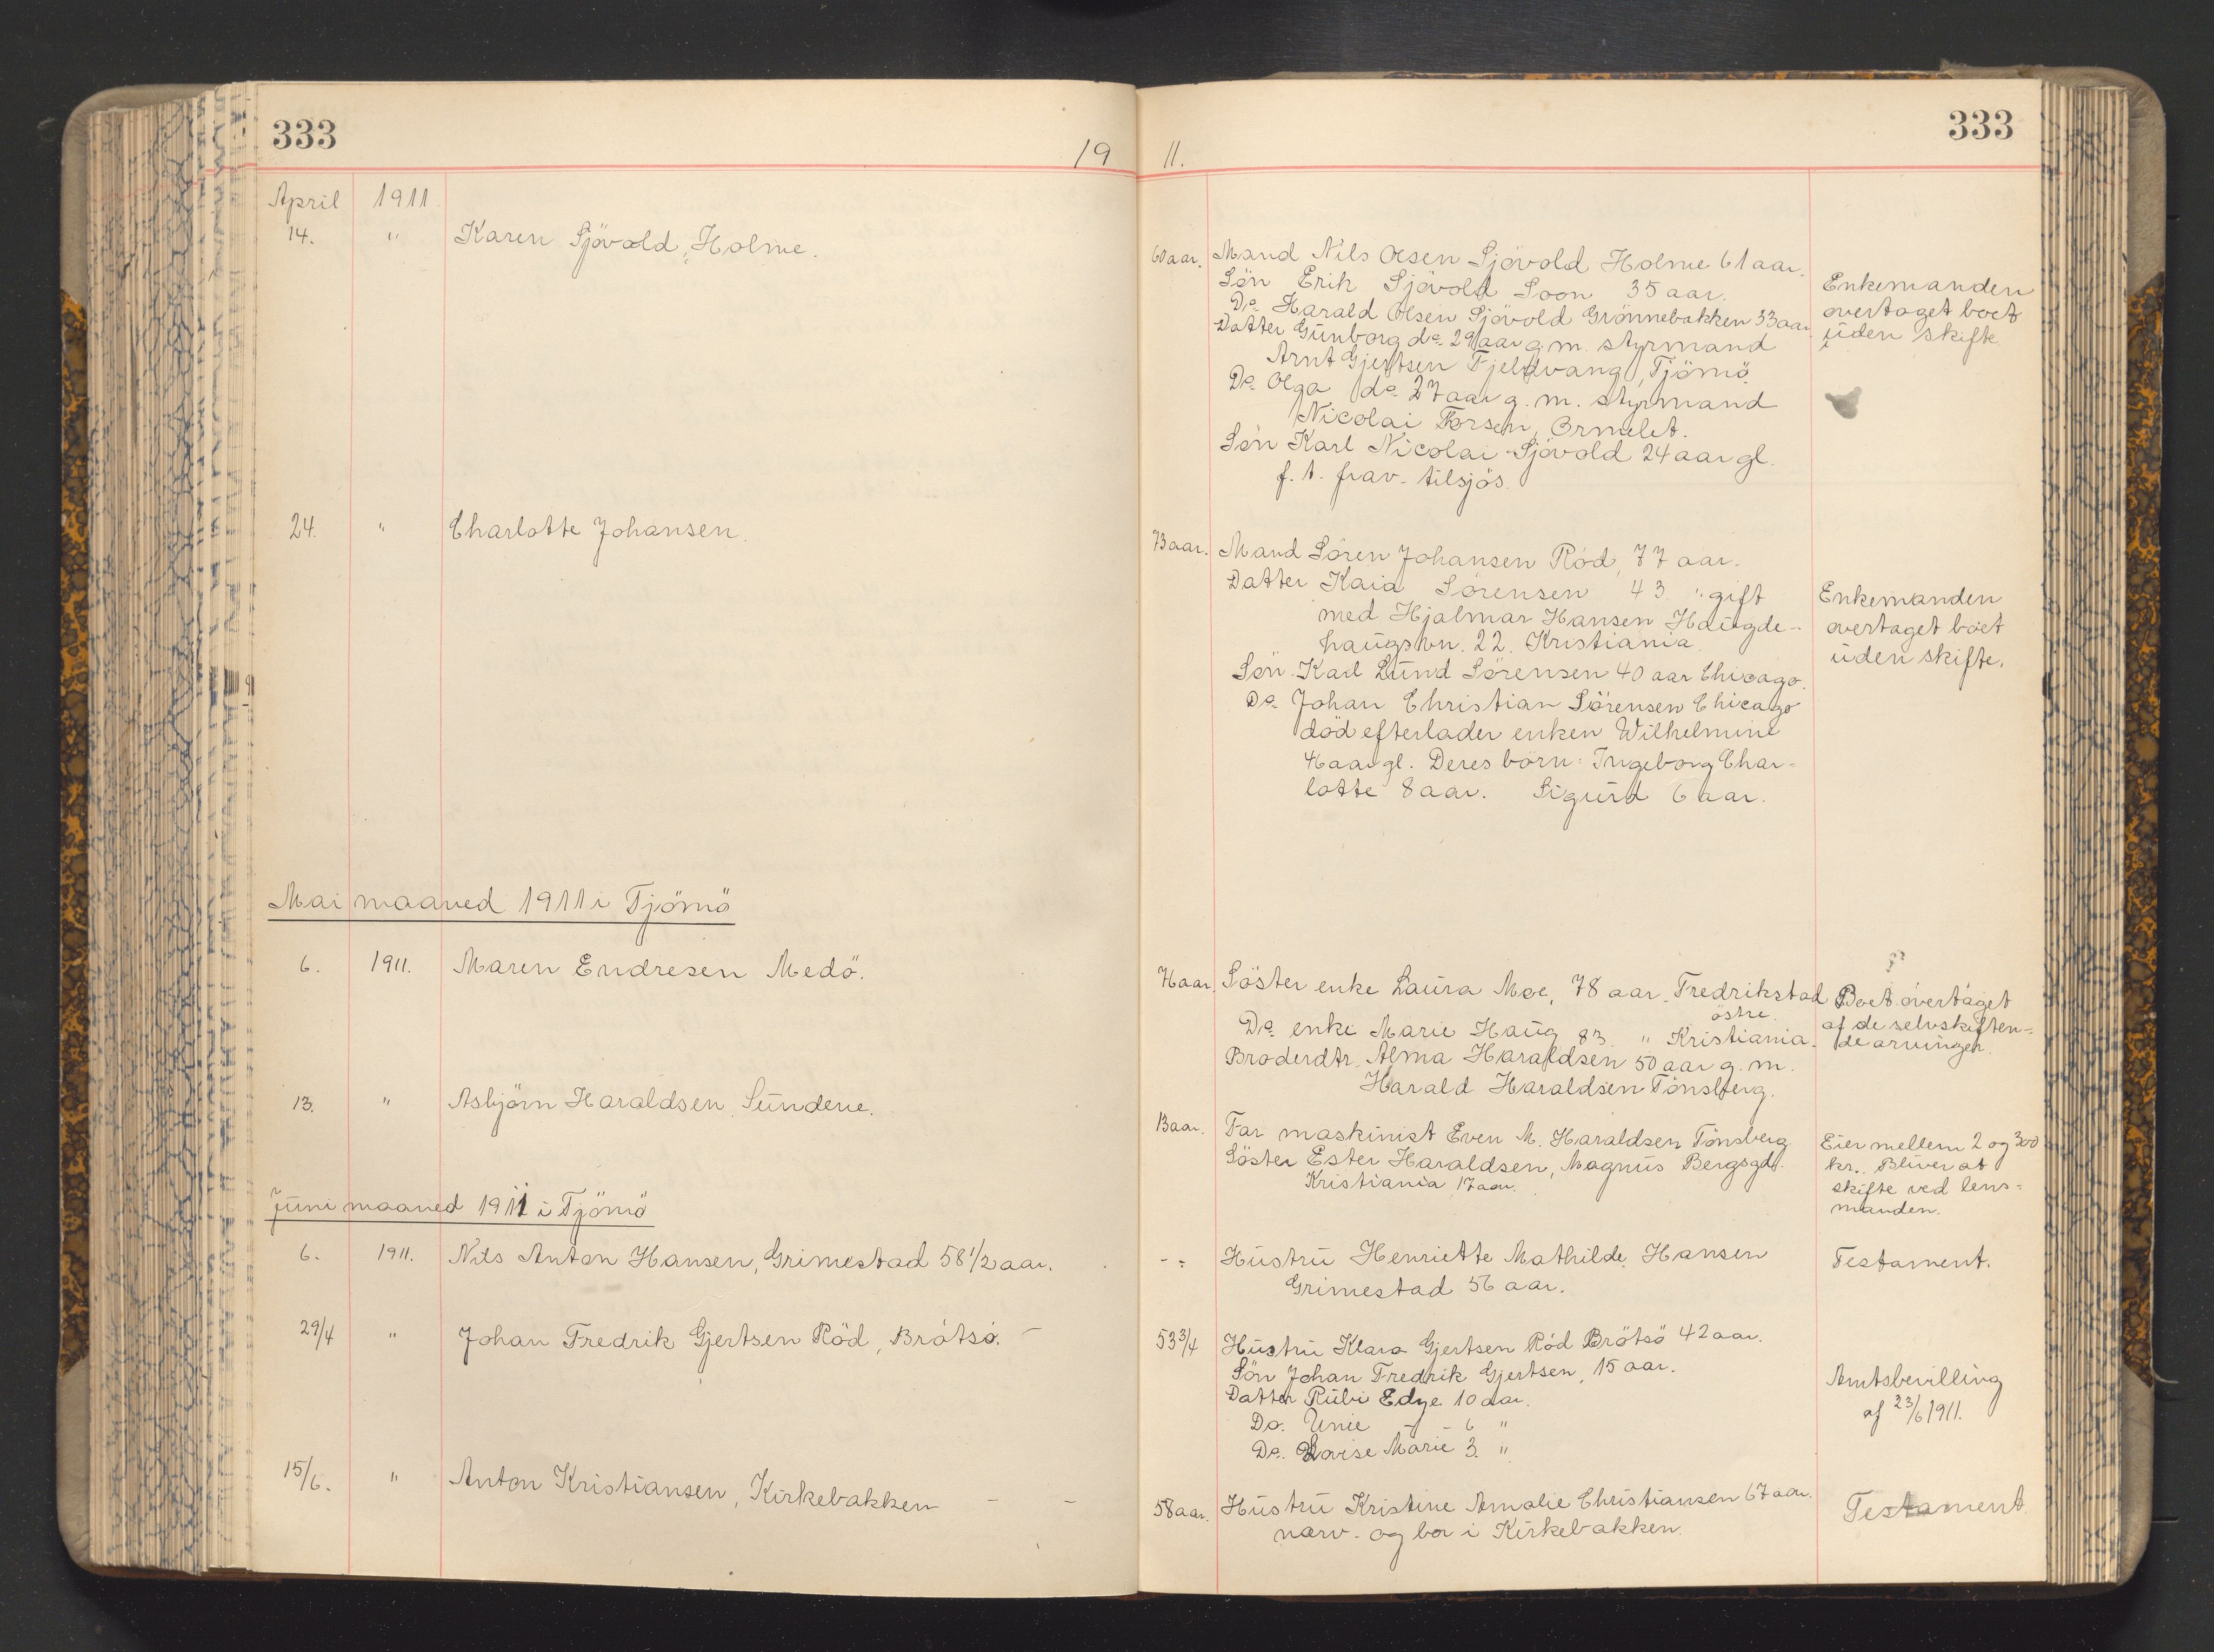 333
19 11.
333
April 1911
14. " Karen Sjövold, Holme.
60 aar. Mand Nils Olsen Sjövold Holme 61 aar.
Sön Erik Sjövold Soon 35 aar.
Do. Harald Olsen Sjövold Grönnebakken 33 aar
Datter Gunborg do. 29 aar g. m. styrmand
Arnt Gjertsen Fjeldvang, Tjömö.
Do. Olga do. 27 aar g. m. styrmand
Nicolai Forsen, Ormelet.
Sön Karl Nicolai Sjövold 24 aar gl.
f. t. frav. tilsjös.
Enkemanden
overtaget boet
uden skifte
24. " Charlotte Johansen.
73 aar. Mand Sören Johansen Röd, 77 aar.
Datter Kaia Sörensen 43 " gift
med Hjalmar Hansen Haugde-
haugsvn. 22. Kristiania
Sön Karl Lund Sörensen 40 aar Chicago.
Do. Johan Christian Sörensen Chicago
död efterlader enken Wilhelmine
46 aar gl. Deres börn: Ingeborg Char-
lotte 8 aar. Sigurd 6 aar.
Enkemanden
overtaget boet
uden skifte.
Mai maaned 1911 i Tjömö
6. 1911. Maren Endresen Medö.
76 aar. Söster enke Laura Moe, 78 aar. Fredrikstad
östre.
Do. enke Marie Haug 83 " Kristiania.
Broderdtr. Alma Haraldsen 50 aar g. m.
Harald Haraldsen Tönsberg.
Boet overtaget
af de selvskiften-
de arvinger.
13. " Asbjörn Haraldsen, Sundene.
13 aar. Far maskinist Even M. Haraldsen Tönsberg
Söster Ester Haraldsen, Magnus Bergsgd.
Kristiania 17 aar.
Eier mellem 2 og 300
kr. Bliver at
skifte ved lens-
manden.
Juni maaned 1911 i Tjömö
6. 1911. Nils Anton Hansen, Grimestad 58 1/2 aar.
-"- Hustru Henriette Mathilde Hansen
Grimestad 56 aar.
Testament.
29/4 " Johan Fredrik Gjertsen Röd, Brötsö. -
53 3/4 Hustru Klara Gjertsen Röd Brötsö 42 aar.
Sön Johan Fredrik Gjertsen, 15 aar.
Datter Rubi Edye 10 aar.
Do. Unie - 6 "
Do. Lovise Marie 3. "
Amtsbevilling
af 23/6 1911.
15/6. " Anton Kristiansen, Kirkebakken - -
58 aar. Hustru Kristine Amalie Christiansen 67 aar.
narv. og bor i Kirkebakken.
Testament